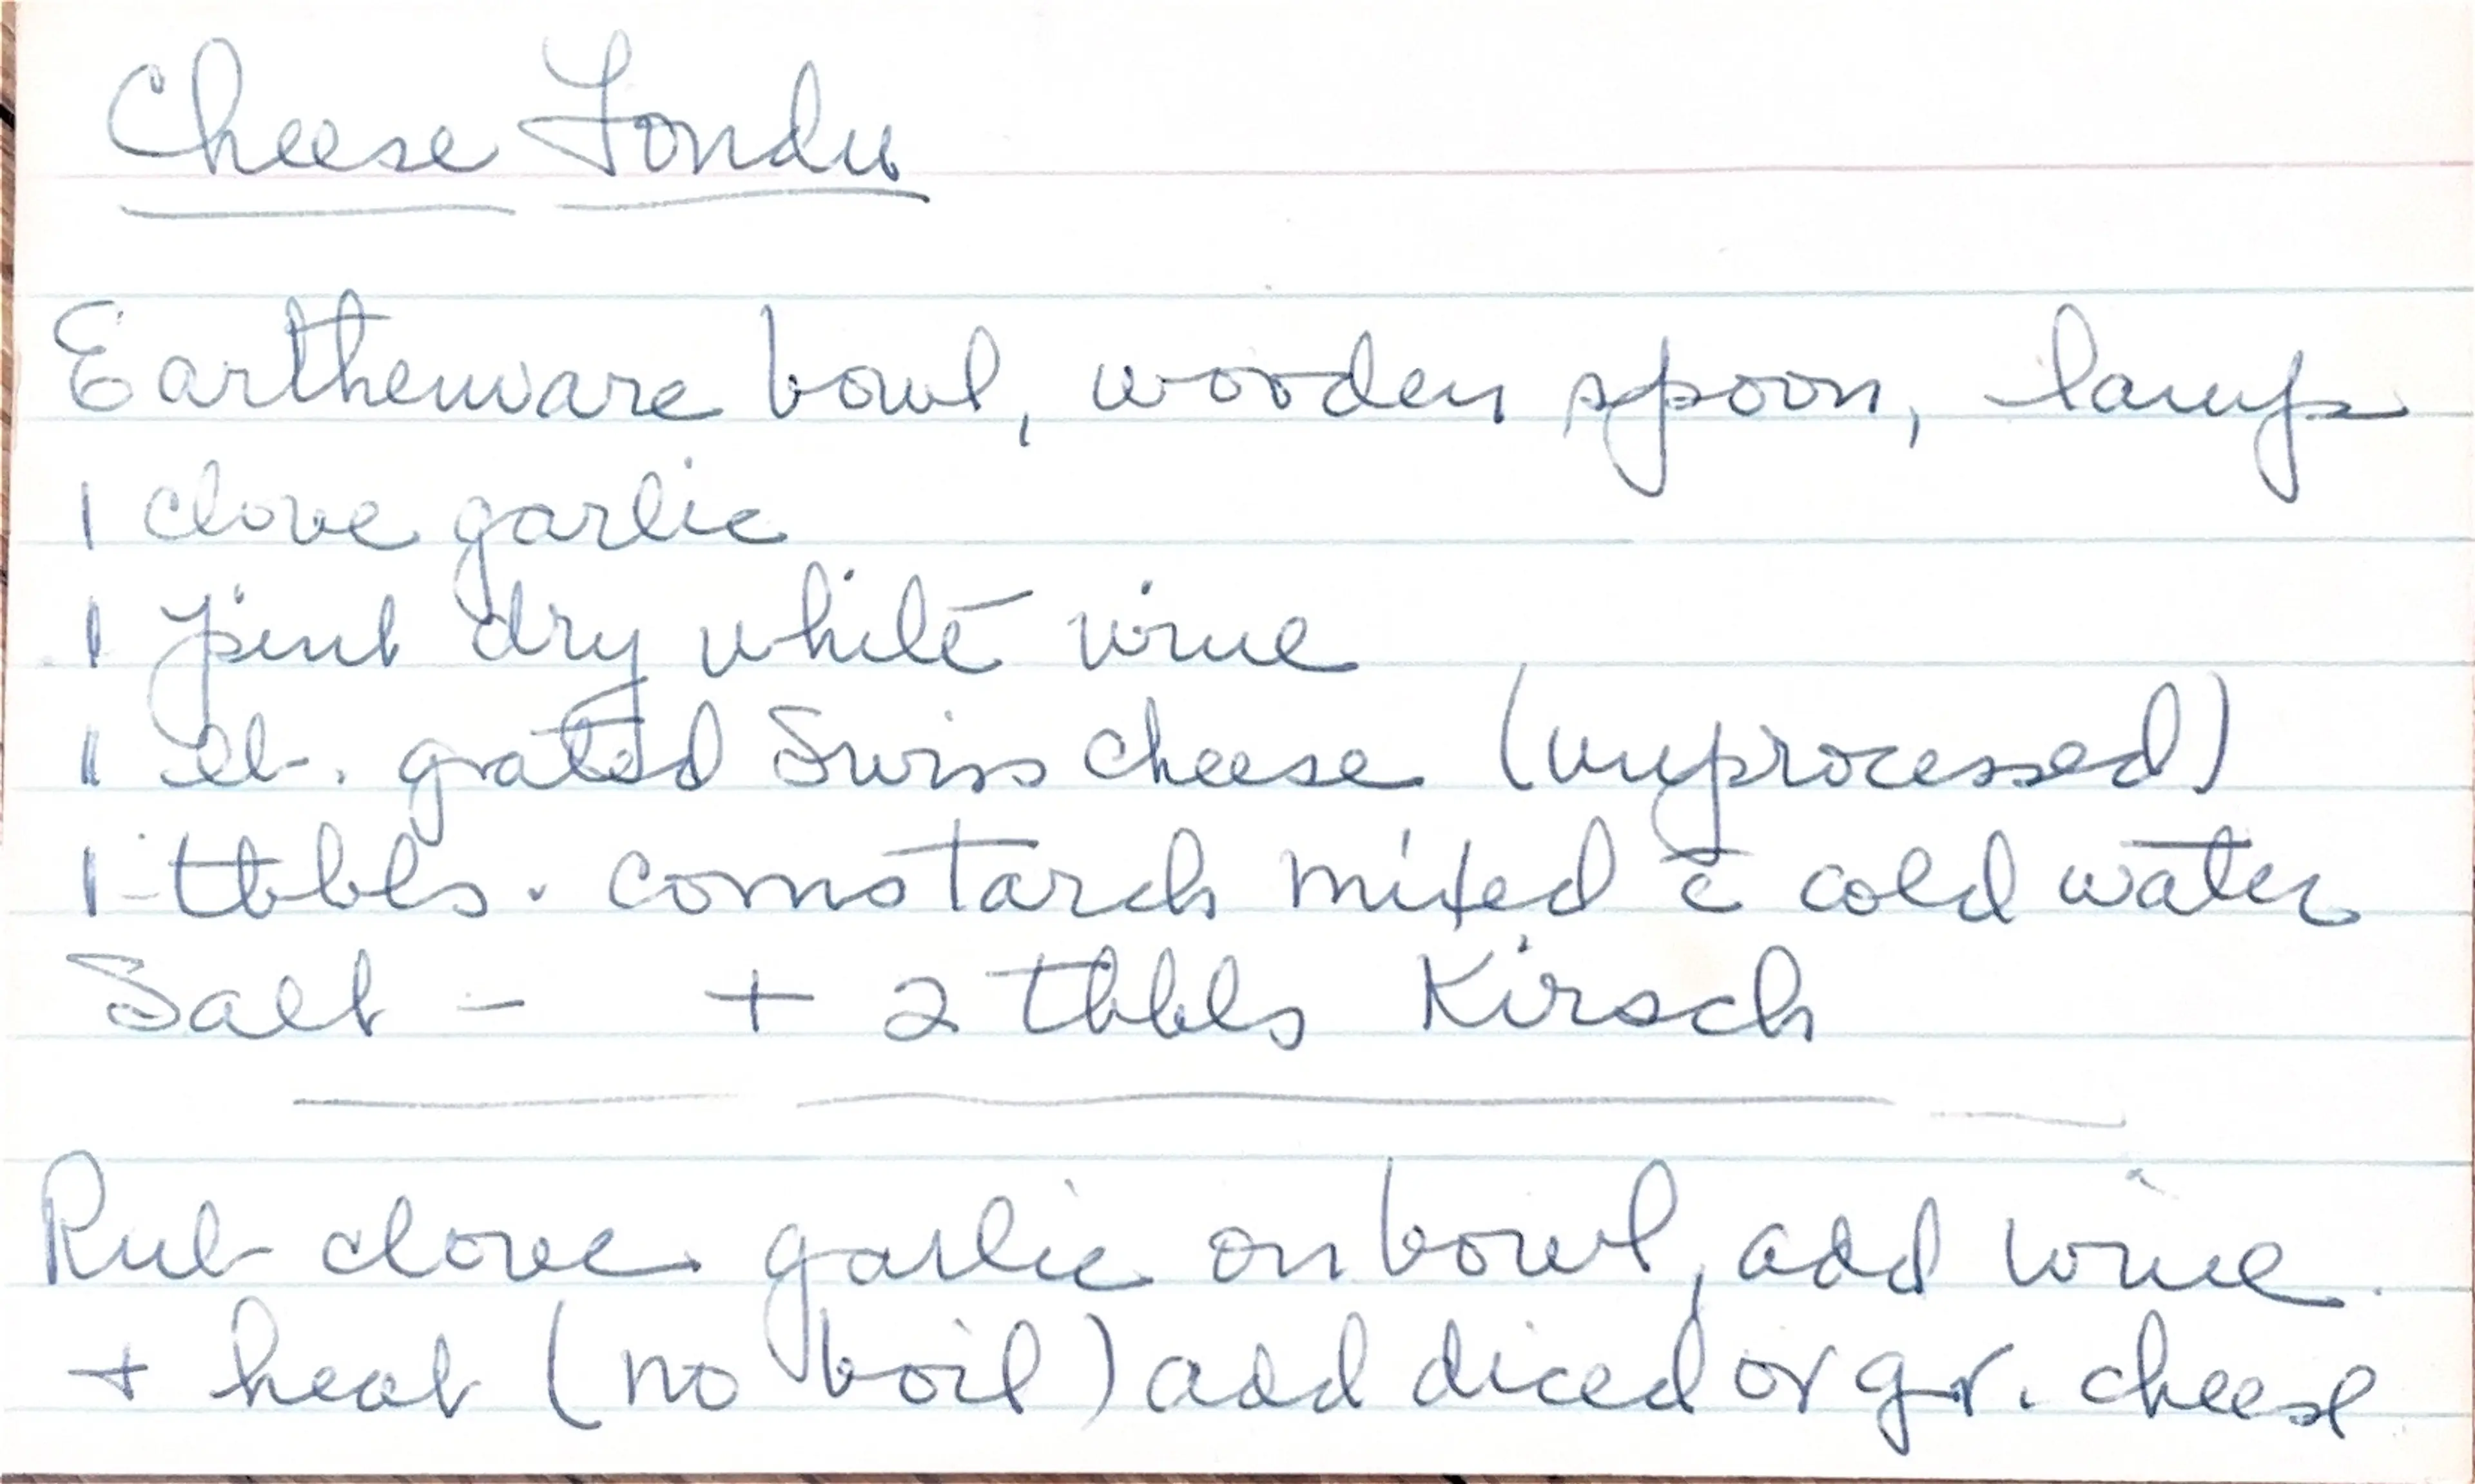 Cheese Fondu
Earthenware bowl, wooden spoon, lamp
1 clove garlic
1 pint dry white wine
1 lb. grated Swiss cheese (unprocessed)
1 tbbls. cornstarch mixed c̄ cold water
Salt - + 2 tbbls Kirsch
Rub clove garlic on bowl, add wine
+ heat (no boil) add diced or gr. cheese